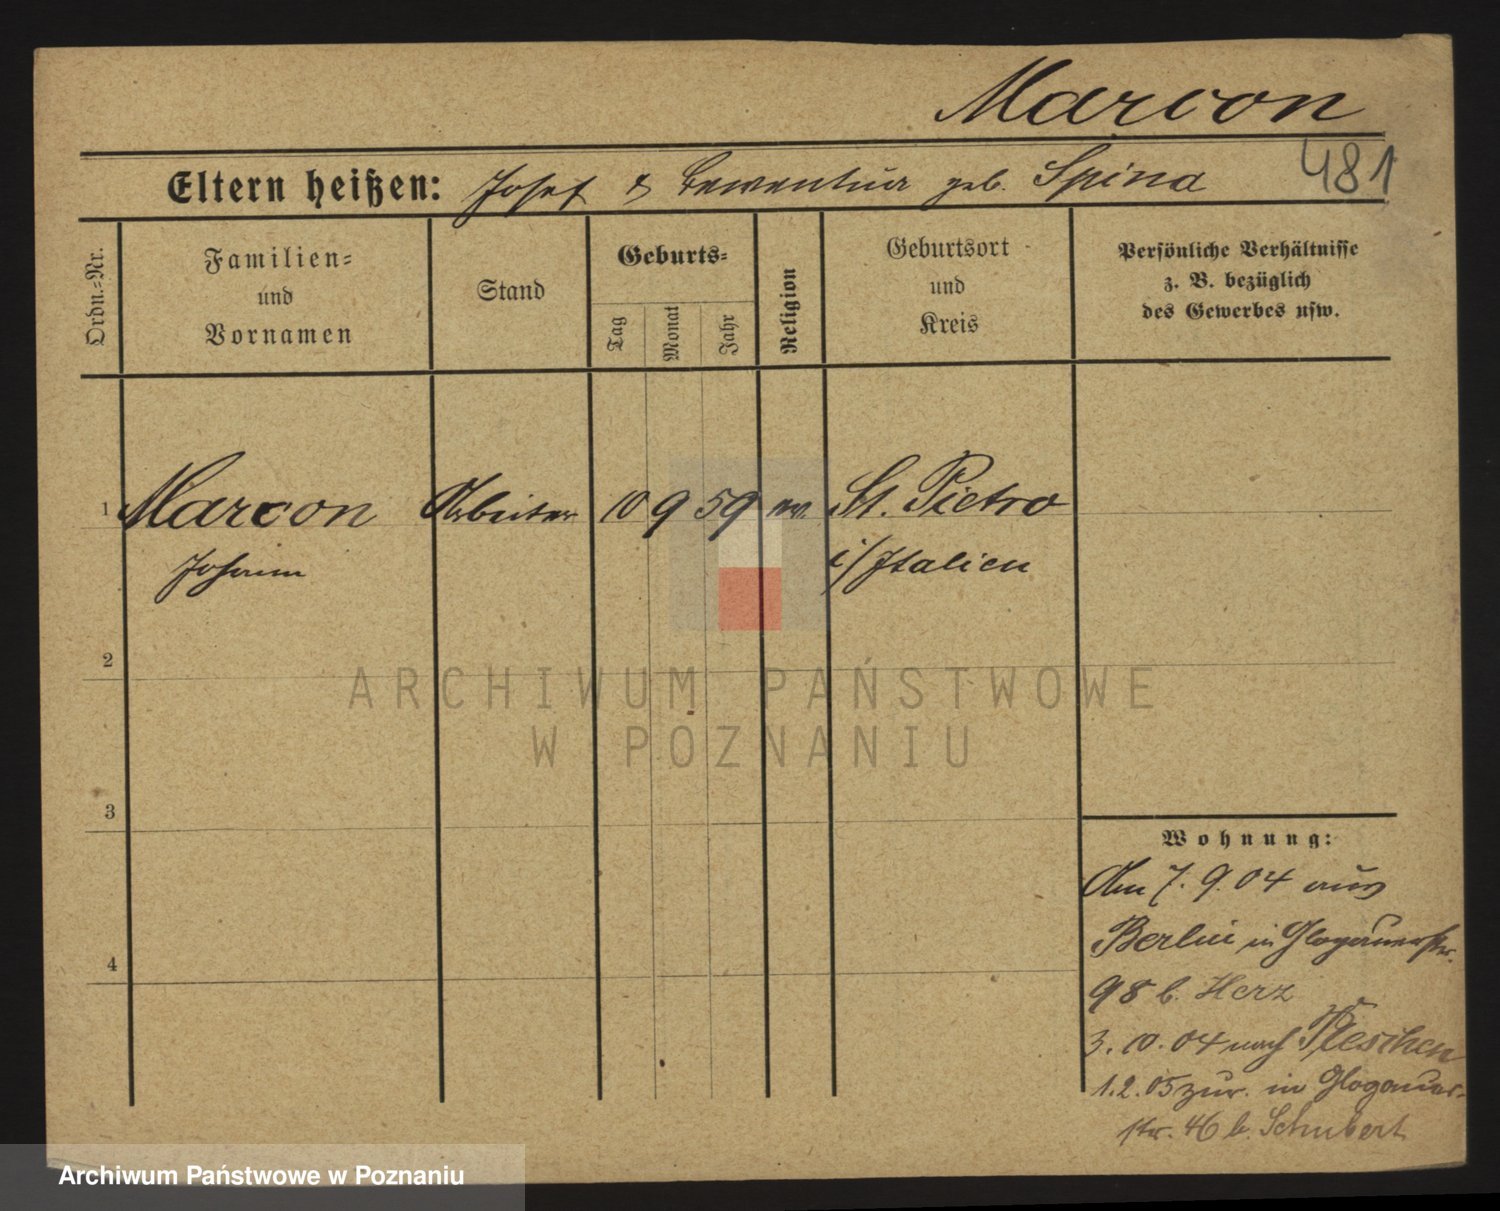 Marcon
481
Eltern heißen: Josef & geb. Spina
Ordn.-Nr.
Familien-
und
Vornamen
Stand
Geburts-
Tag
Monat
Jahr
Religion
Geburtsort
und
Kreis
Persönliche Verhältnisse
z. B. bezüglich
des Gewerbes usw.
1 Marcon Arbeiter 10 9 59 St. Pietro
Johann i/Italien
2
3
4
Wohnung:
Am 7. 9. 04 aus
Berlin in Glogauerstr.
98 b. Herz
3. 10. 04 nach Pleschen
1. 2. 05 zur. in Glogauer-
str. 46 b. Schubert
ARCHIWUM PAŃSTWOWE
W POZNANIU
Archiwum Państwowe w Poznaniu